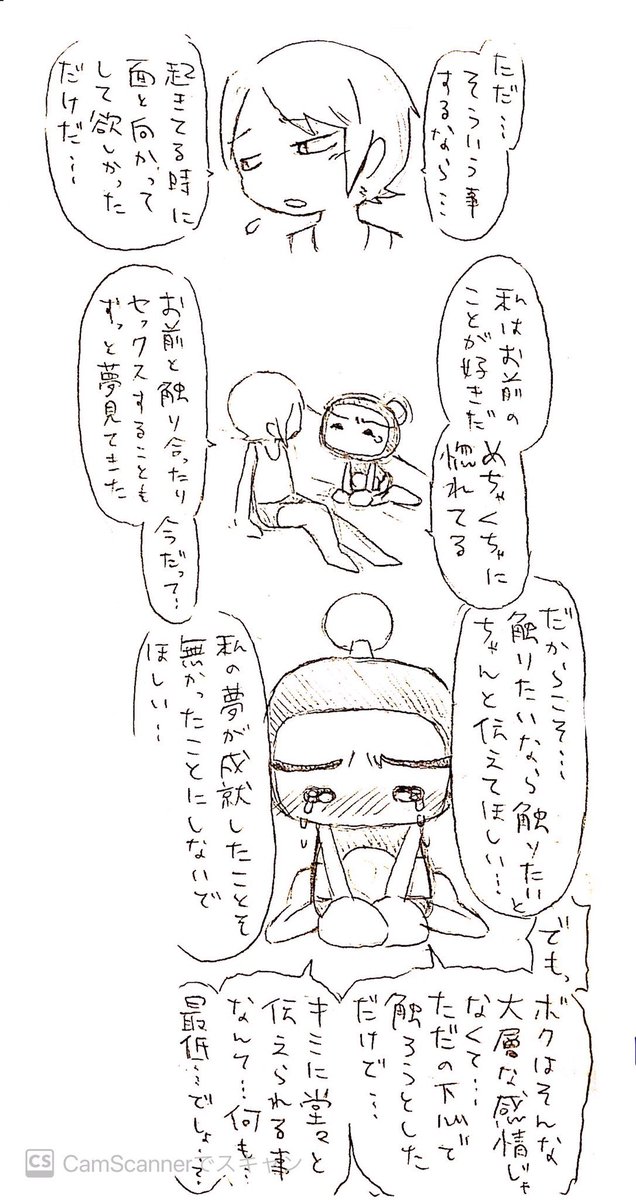 ただ…
そういう事
するなら…
起きてる時に
面と向かって
して欲しかった
だけだ…
私はお前の
ことが好きだ
めちゃくちゃに
惚れてる
お前と触り合ったり
セックスすることも
ずっと夢見てきた
今だって…
だからこそ…
触りたいなら触りたいと
ちゃんと伝えてほしい…
私の夢が成就したことを
無かったことにしないで
ほしい…
でもっ
ボクはそんな
大層な感情じゃ
なくて…
ただの下心で
触ろうとした
だけで…
キミに堂々と
伝えられる事
なんて…何も…
最低…でしょ…?
CS CamScannerでスキャン